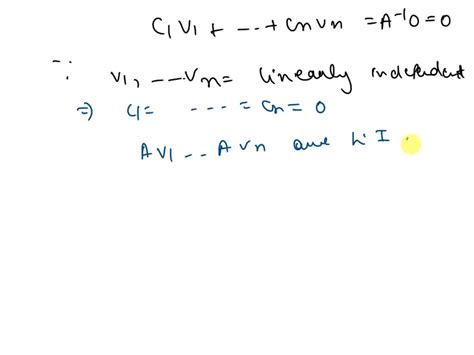 C1V1 + ... + CnVn = A⁻¹0 = 0
∵ V1, ... Vn = linearly independent
⇒ C1 = .... = Cn = 0
AV1 .. AVn are L.I